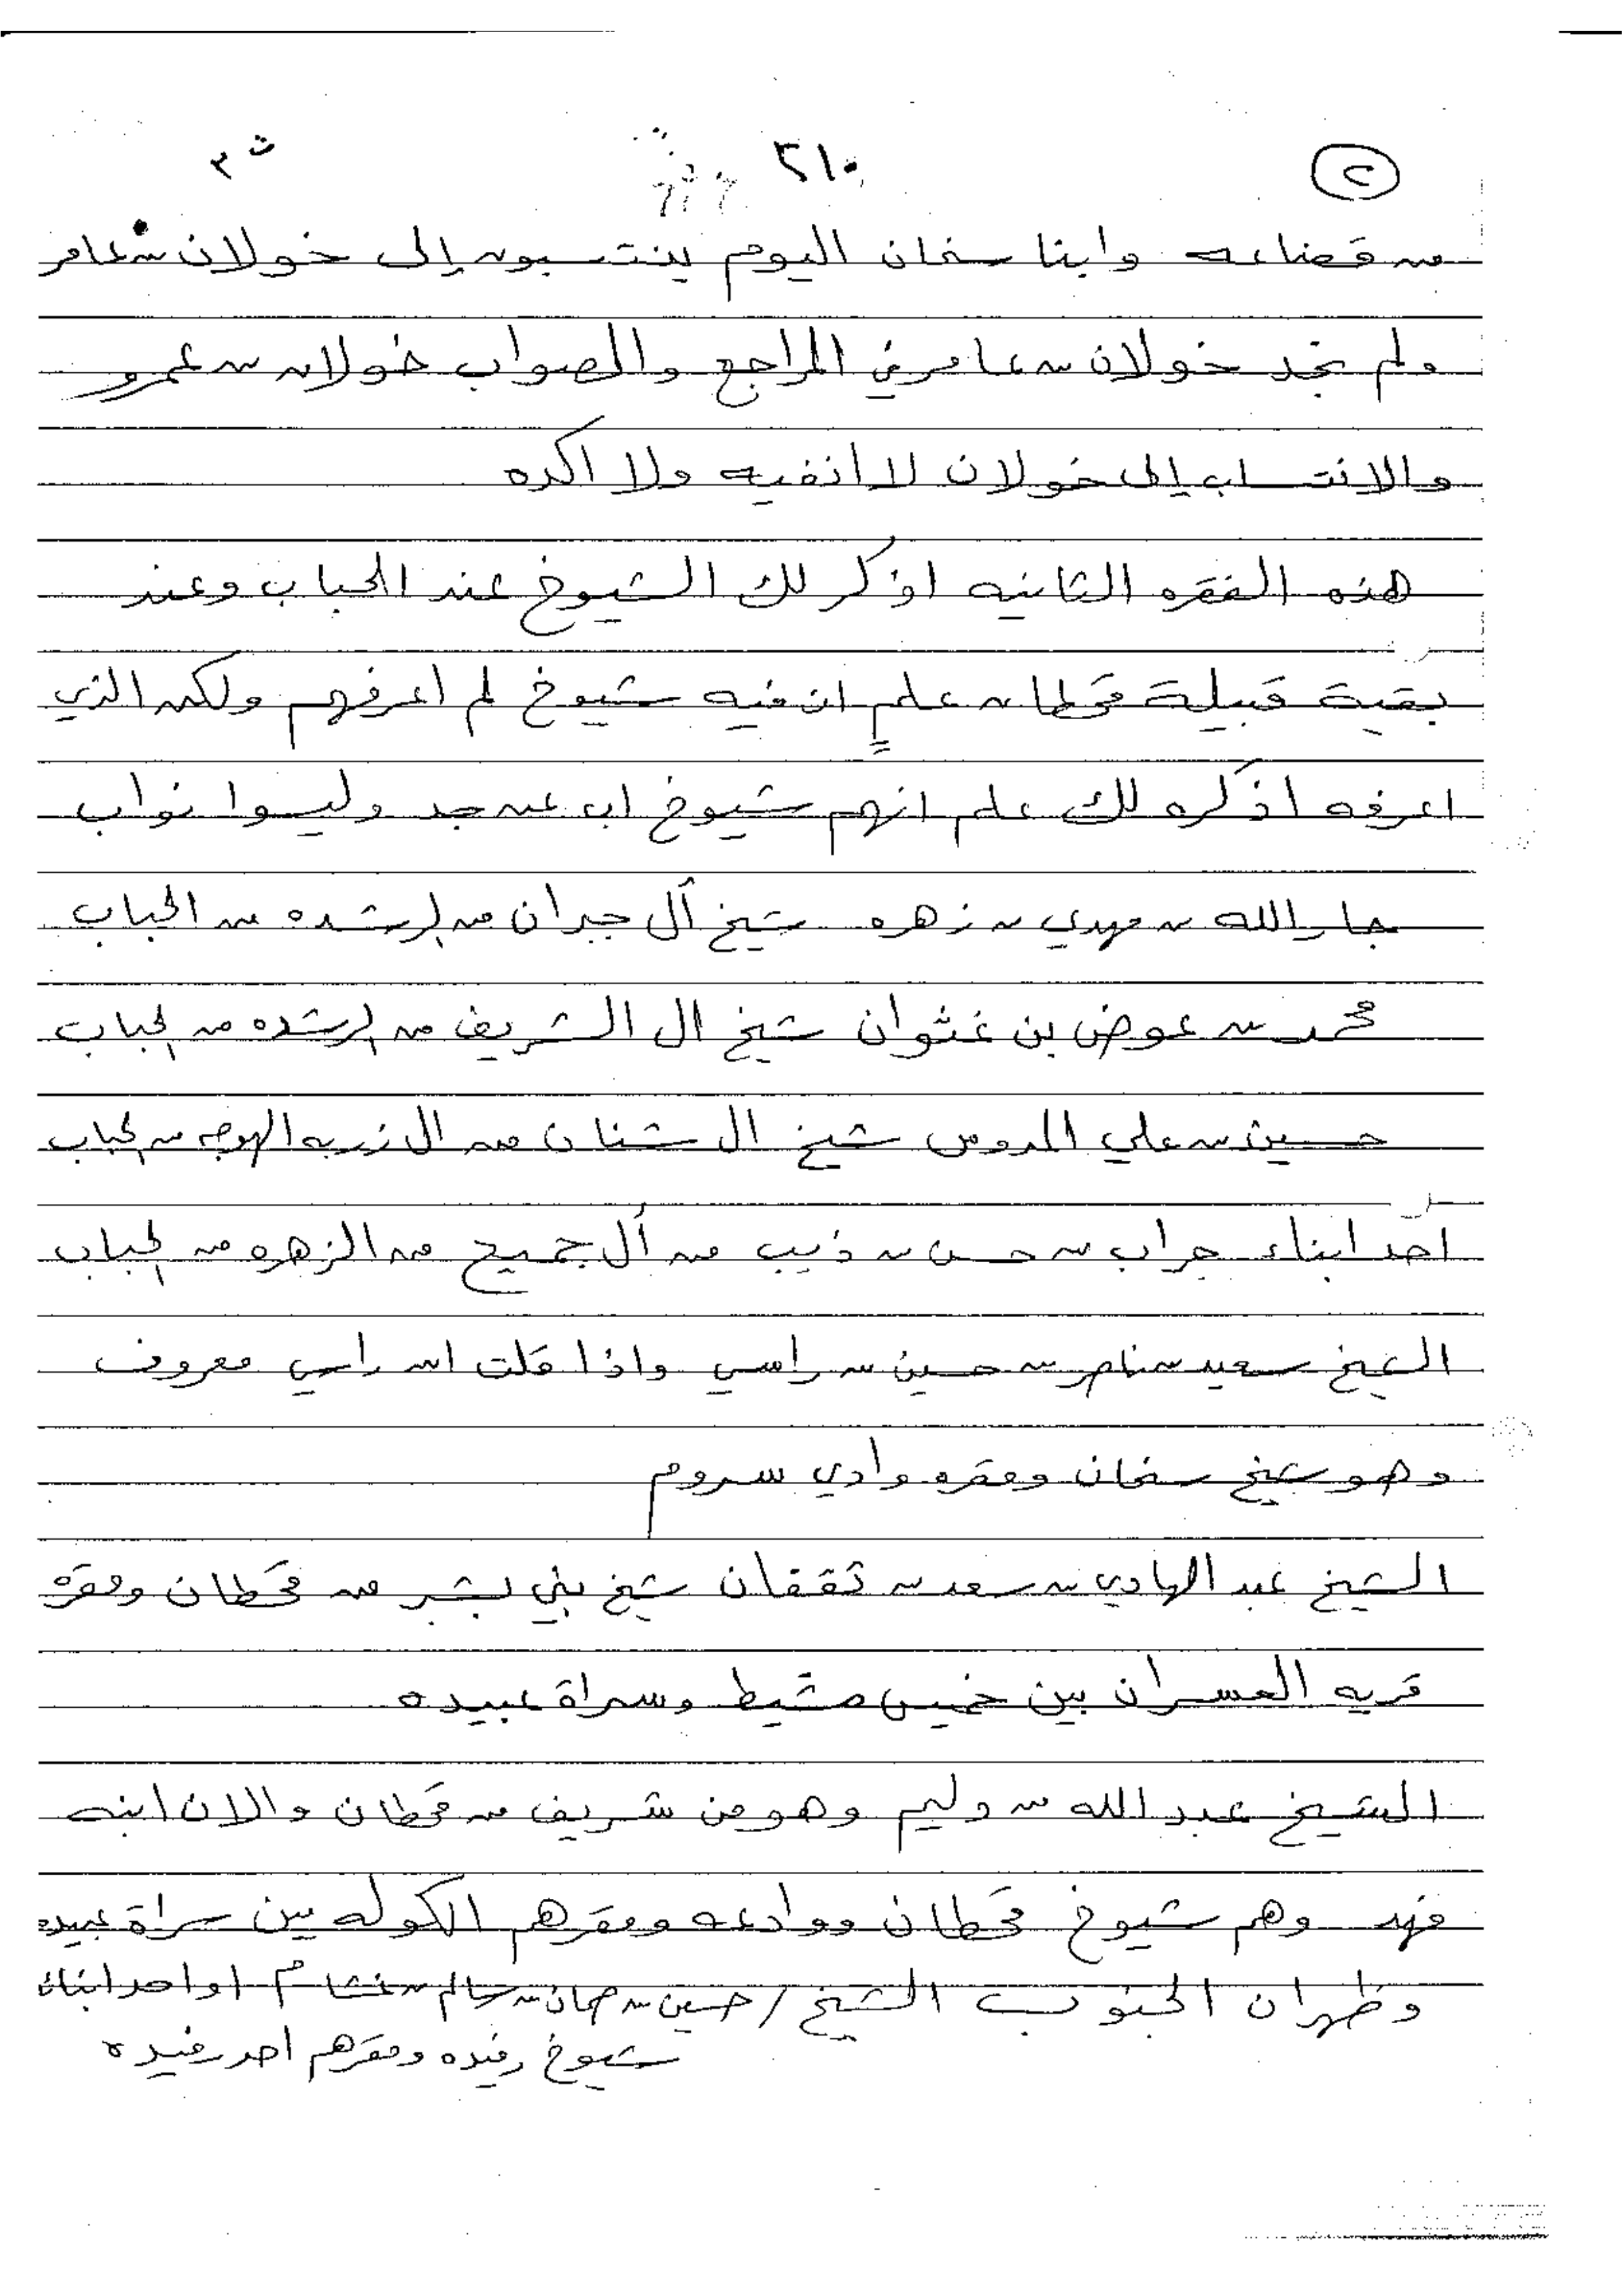 ٢ ٢١٠ ث ٣
من قضاعه وابنا سنحان اليوم ينتسبون إلى خولان بن عامر
ولم نجد خولان بن عامر في المراجع والصواب خولان بن عمرو
والانتساب إلى خولان لا أنفيه ولا اكده
هذه الفقره الثانيه اذكر لك الشيوخ عند الحباب وعند
بقية قبيلة قحطان علمٍ ان فيه شيوخ لم اعرفهم ولكن الذي
اعرفه اذكره لك علم انهم شيوخ اب عن جد وليسوا نواب
جار الله بن مهدي بن زهره شيخ آل جبران من لرشده من الحباب
محمد بن عوض بن غثوان شيخ ال الشريف من لرشده من لحباب
حسين بن علي المدوس شيخ ال شنان من ال زربه الهوجه من لحباب
احد ابناء جراب بن حسن بن ذيب من آل جميح من الزهره من لحباب
الشيخ سعيد بن ناصر بن حسين بن راسي واذا قلت ابن راسي معروف
وهو شيخ سنحان ومقره وادي سروم
الشيخ عبد الهادي بن سعد بن ثقفان شيخ بني بشر من قحطان ومقره
قريه العسران بين خميس مشيط وسراة عبيده
الشيخ عبد الله بن دليم وهو من شريف من قحطان والان ابنه
فهد وهم شيوخ قحطان ووادعه ومقرهم الكوله بين سراة عبيده
وظهران الجنوب الشيخ / حسين بن صمان بن سالم بن غشام او احد ابناه
شيوخ رفيده ومقرهم احد رفيده